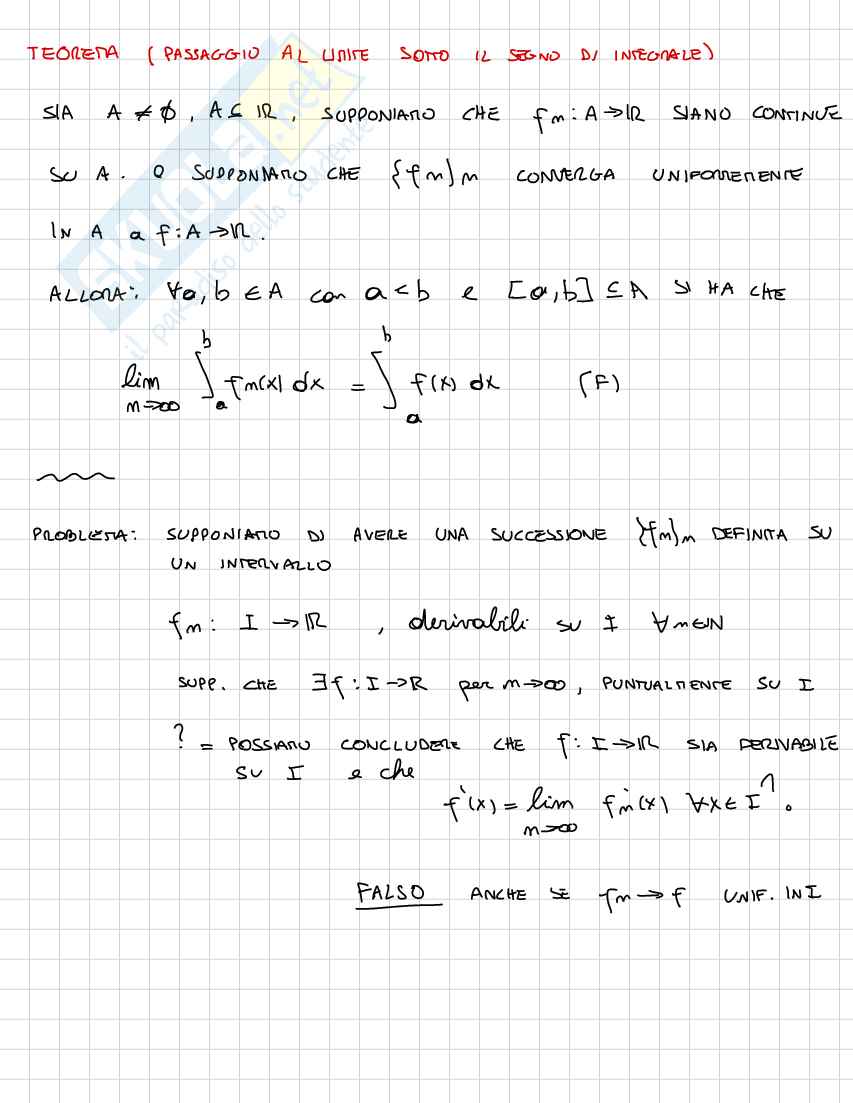 TEOREMA (PASSAGGIO AL LIMITE SOTTO IL SEGNO DI INTEGRALE)
SIA A ≠ ∅, A ⊆ ℝ, SUPPONIAMO CHE fn: A→ℝ SIANO CONTINUE
SU A. E SUPPONIAMO CHE {fn}n CONVERGA UNIFORMEMENTE
IN A a f: A→ℝ.
ALLORA: ∀a, b ∈ A con a < b e [a,b] ⊆ A SI HA CHE
lim n→∞ ∫_a^b fn(x) dx = ∫_a^b f(x) dx (F)
PROBLEMA: SUPPONIAMO DI AVERE UNA SUCCESSIONE {fn}n DEFINITA SU
UN INTERVALLO
fn: I → ℝ , derivabili SU I ∀n∈ℕ
SUPP. CHE ∃f: I→ℝ per n→∞, PUNTUALMENTE SU I
? = POSSIAMO CONCLUDERE CHE f: I→ℝ SIA DERIVABILE
SU I e che
f'(x) = lim n→∞ fn'(x) ∀x∈I ?.
FALSO ANCHE SE fn → f UNIF. IN I
skuola.net
il paradiso dello studente